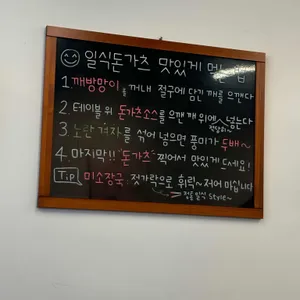 일식돈가츠 맛있게 먹는 법
1. 깨방망이를 꺼내 절구에 담긴 깨를 으깬다
2. 테이블 위 돈가츠소스를 으깬 깨 위에 넣는다
적당히
3 노란 겨자를 섞어 넣으면 풍미가 두배~
4. 마지막!! "돈가츠" 찍어서 맛있게 드세요!
Tip 미소장국: 젓가락으로 휘릭~ 저어 마십니다
정통일식 style~